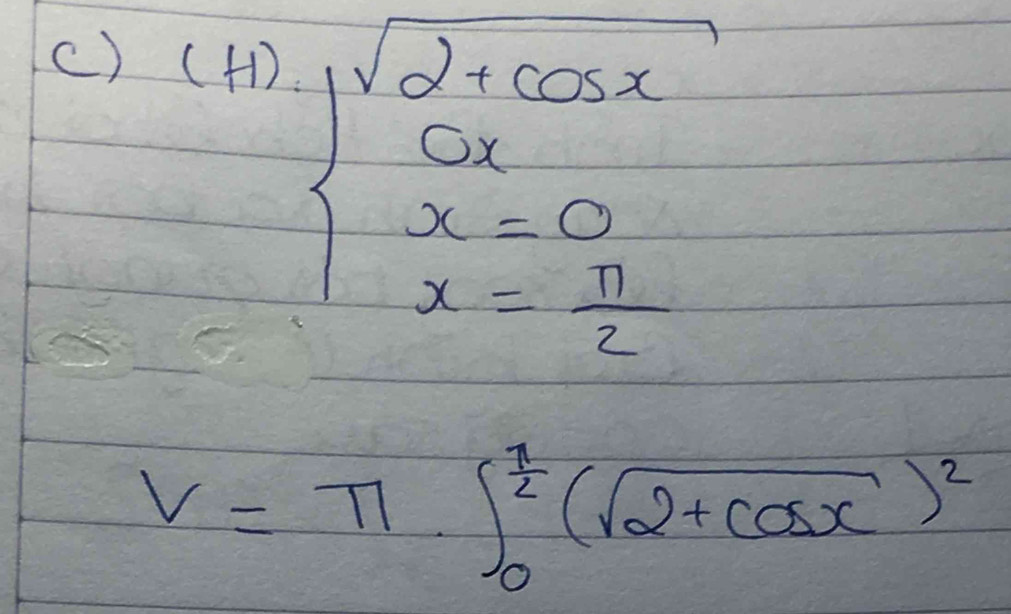 c) (H). { √(2+cosx)
Ox
x = 0
x = π/2
V = π . ∫₀^(π/2) (√(2+cosx))²